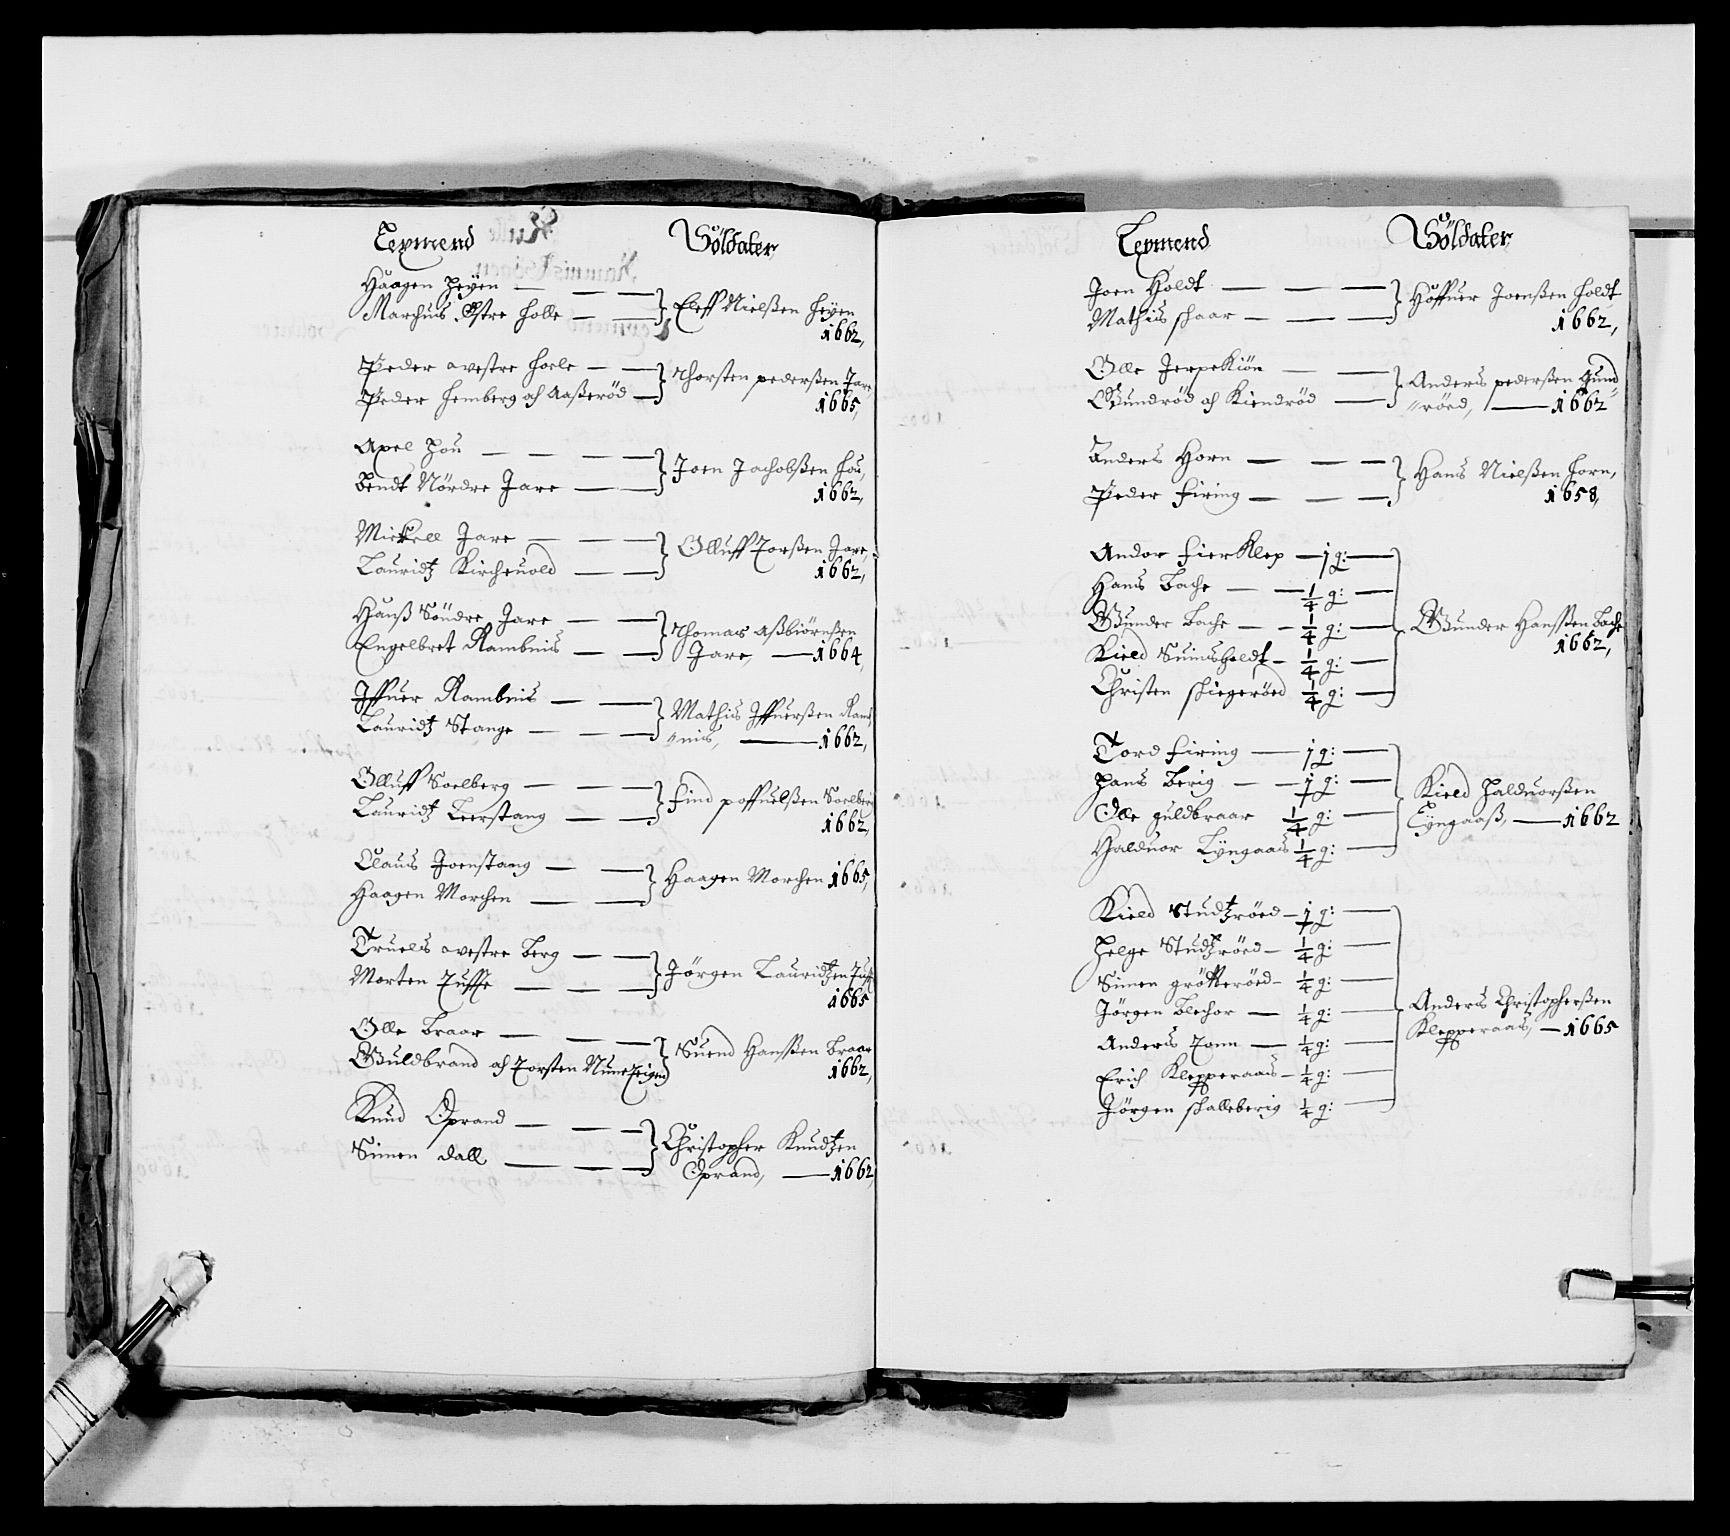 Leymend Söldater
Haagen Heyen
Marchus Østre Holle
Eleff Nielßen Heyen
1662,
Peder westre Holle
Peder Hemberg och Aaßeröd
Thorsten pederßen Jare
1665,
Axel Hou
Bendt Nördre Jare
Joen Jachobßen Hou,
1662,
Mickell Jare
Lauridtz Kircheuold
Olluff Torßen Jare,
1662,
Hanß Söndre Jare
Engelbret Rambnis
Thomas Aßbiörnßen
Jare, 1664,
Iffuer Rambnis
Lauridtz Stange
Mathis Iffuerßen Ram
nis, 1662,
Olluff Soelberg
Lauridtz Leerstang
Find poffuelßen Soelberg
1662,
Claus Joenstang
Haagen Morchen
Haagen Morchen 1665,
Truels westre Berg
Morten Tuffte
Jörgen Lauridtzen Tuft
1665
Olle Braar
Guldbrand och Torsten
Suend Hanßen Braar
1662,
Knud Oprand
Simen dall
Christopher Knudtzen
Oprand, 1662,
Leymend Söldater
Joen Holdt
Mathis skaar
Höffuer Joenßen Holdt
1662,
Olle JerpeKiön
Gundröd och Kiendröd
Anders pederßen Gund
röed, 1662
Anders Horn
Peder Firing
Hans Nielßen Horn,
1658,
Andor FierKlep 1 g:
Hans Bache 1/4 g:
Gunder Bache 1/4 g:
Kield Suinsholdt 1/4 g:
Christen skiegeröed 1/4 g:
Gunder Hanßen Bache
1662,
Tord Firing 1 g:
Hans Berig 1 g:
Olle guldbraar 1/4 g:
Halduor Lyngaas 1/4 g:
Kield Halduorßen
Lyngaaß, 1662
Kield Studtzröed 1 g:
Helge Studtzröed 1/4 g:
Simen grötteröed 1/4 g:
Jörgen Blechor 1/4 g:
Anders Tonn 1/4 g:
Erich Klepperaas 1/4 g:
Jörgen skalleberig 1/4 g:
Anders Christopherßen
Klepperaas, 1665